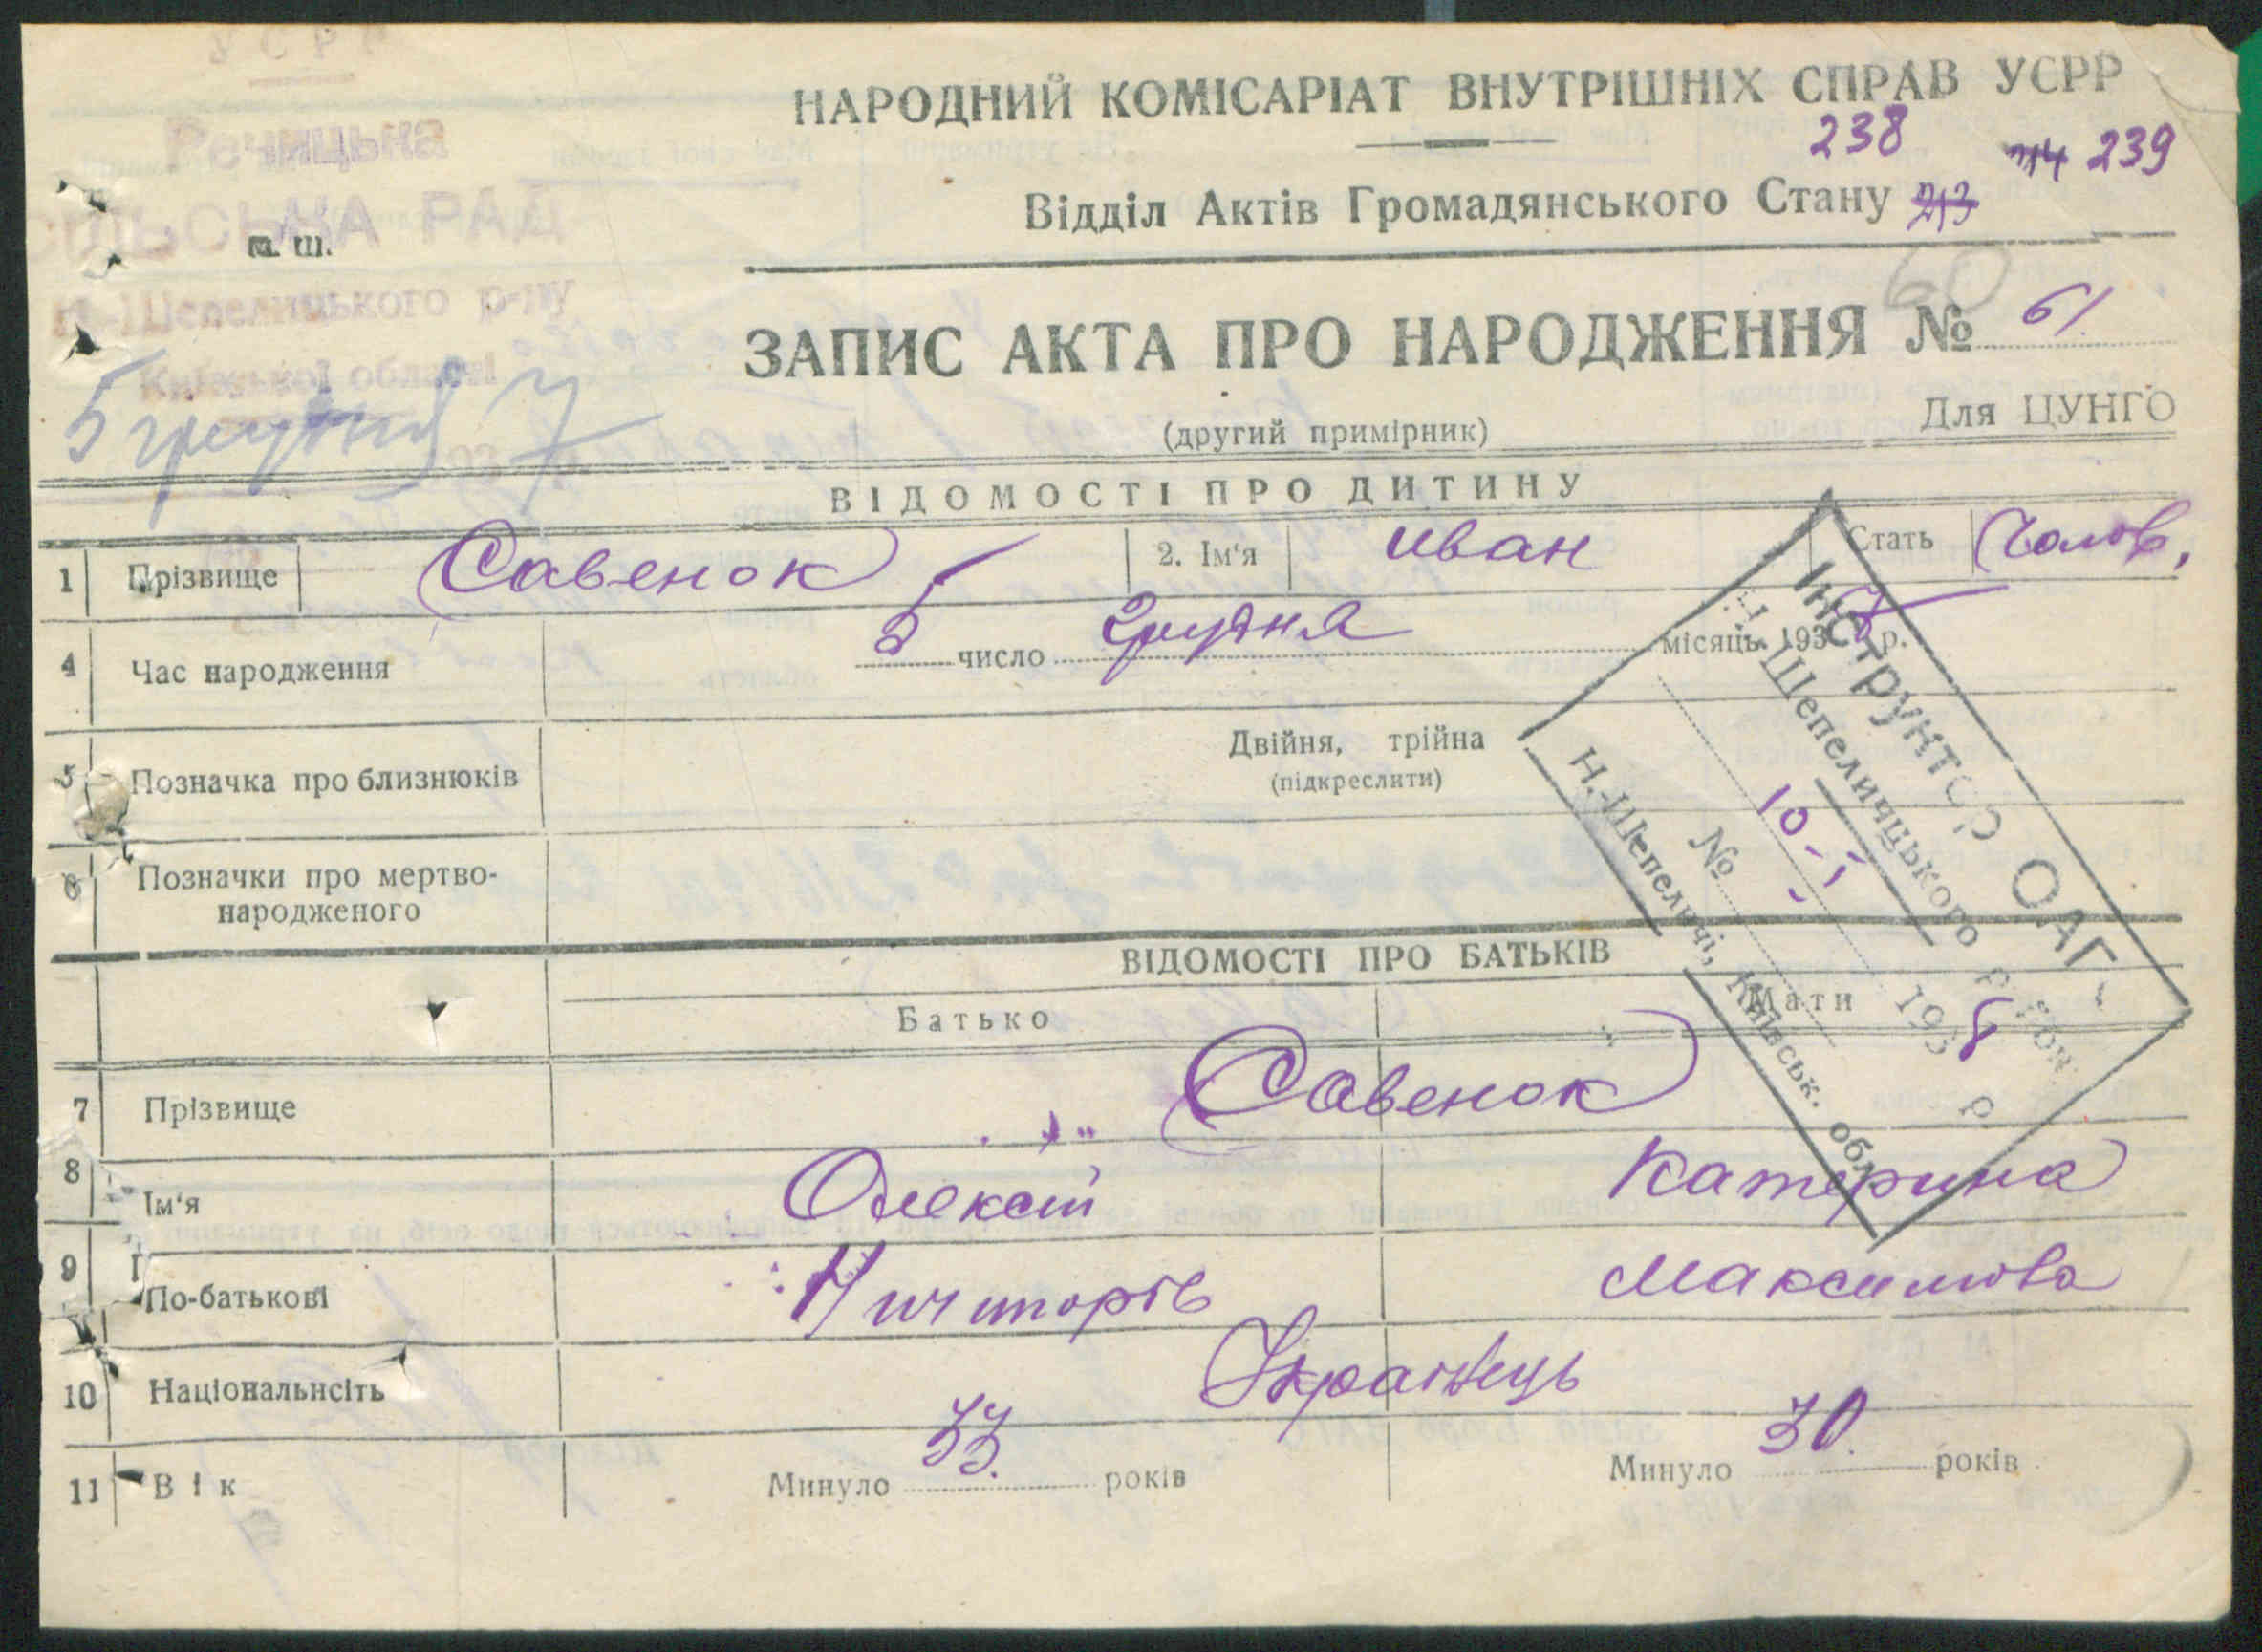 УСРР
Речицька
СІЛЬСЬКА РАД
Н-Шепелицького р-ну
Київської області
м. ш.
5 грудня 193 7
НАРОДНИЙ КОМІСАРІАТ ВНУТРІШНІХ СПРАВ УСРР
238 239
Відділ Актів Громадянського Стану 213
60
ЗАПИС АКТА ПРО НАРОДЖЕННЯ № 61
(другий примірник) Для ЦУНГО
ВІДОМОСТІ ПРО ДИТИНУ
1 Прізвище Савенок 2. Ім'я Иван Стать Чолов.
4 Час народження 5 число Грудня місяць 193 р.
5 Позначка про близнюків Двійня, трійна
(підкреслити)
6 Позначки про мертво-
народженого
Інструктор ОАГС
Н. Шепелицького район.
№ 10-I 1938 р.
Н.-Шепеличі, Київськ. обл.
ВІДОМОСТІ ПРО БАТЬКІВ
Батько Мати
7 Прізвище Савенок
8 Ім'я Олексій Катерина
9 По-батькові Ничипорів Максимова
10 Національнсіть Українець
11 Вік Минуло 33. років Минуло 30. років